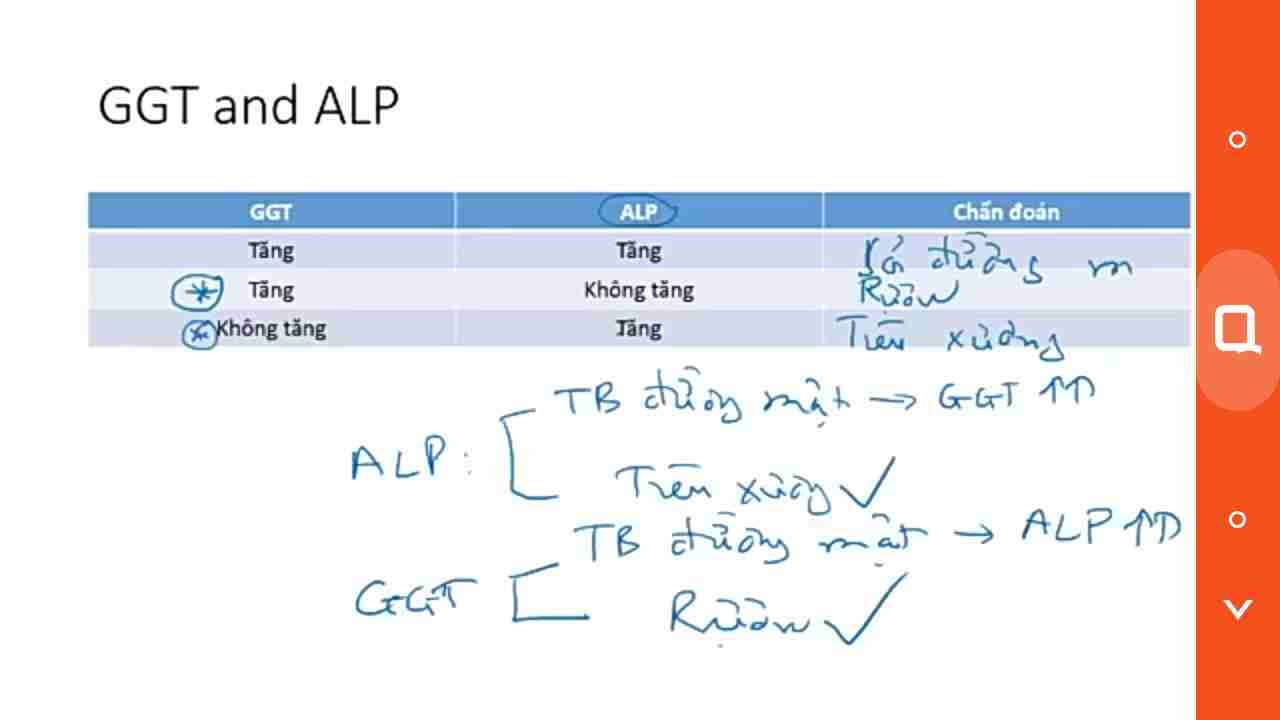 GGT and ALP
GGT ALP Chẩn đoán
Tăng Tăng đường m
Tăng Không tăng Rượu
Không tăng Tăng Tiền xương
TB đường mật → GGT ↑↑
ALP:
Tiền xương ✓
TB đường mật → ALP ↑↑
GGT
Rượu ✓